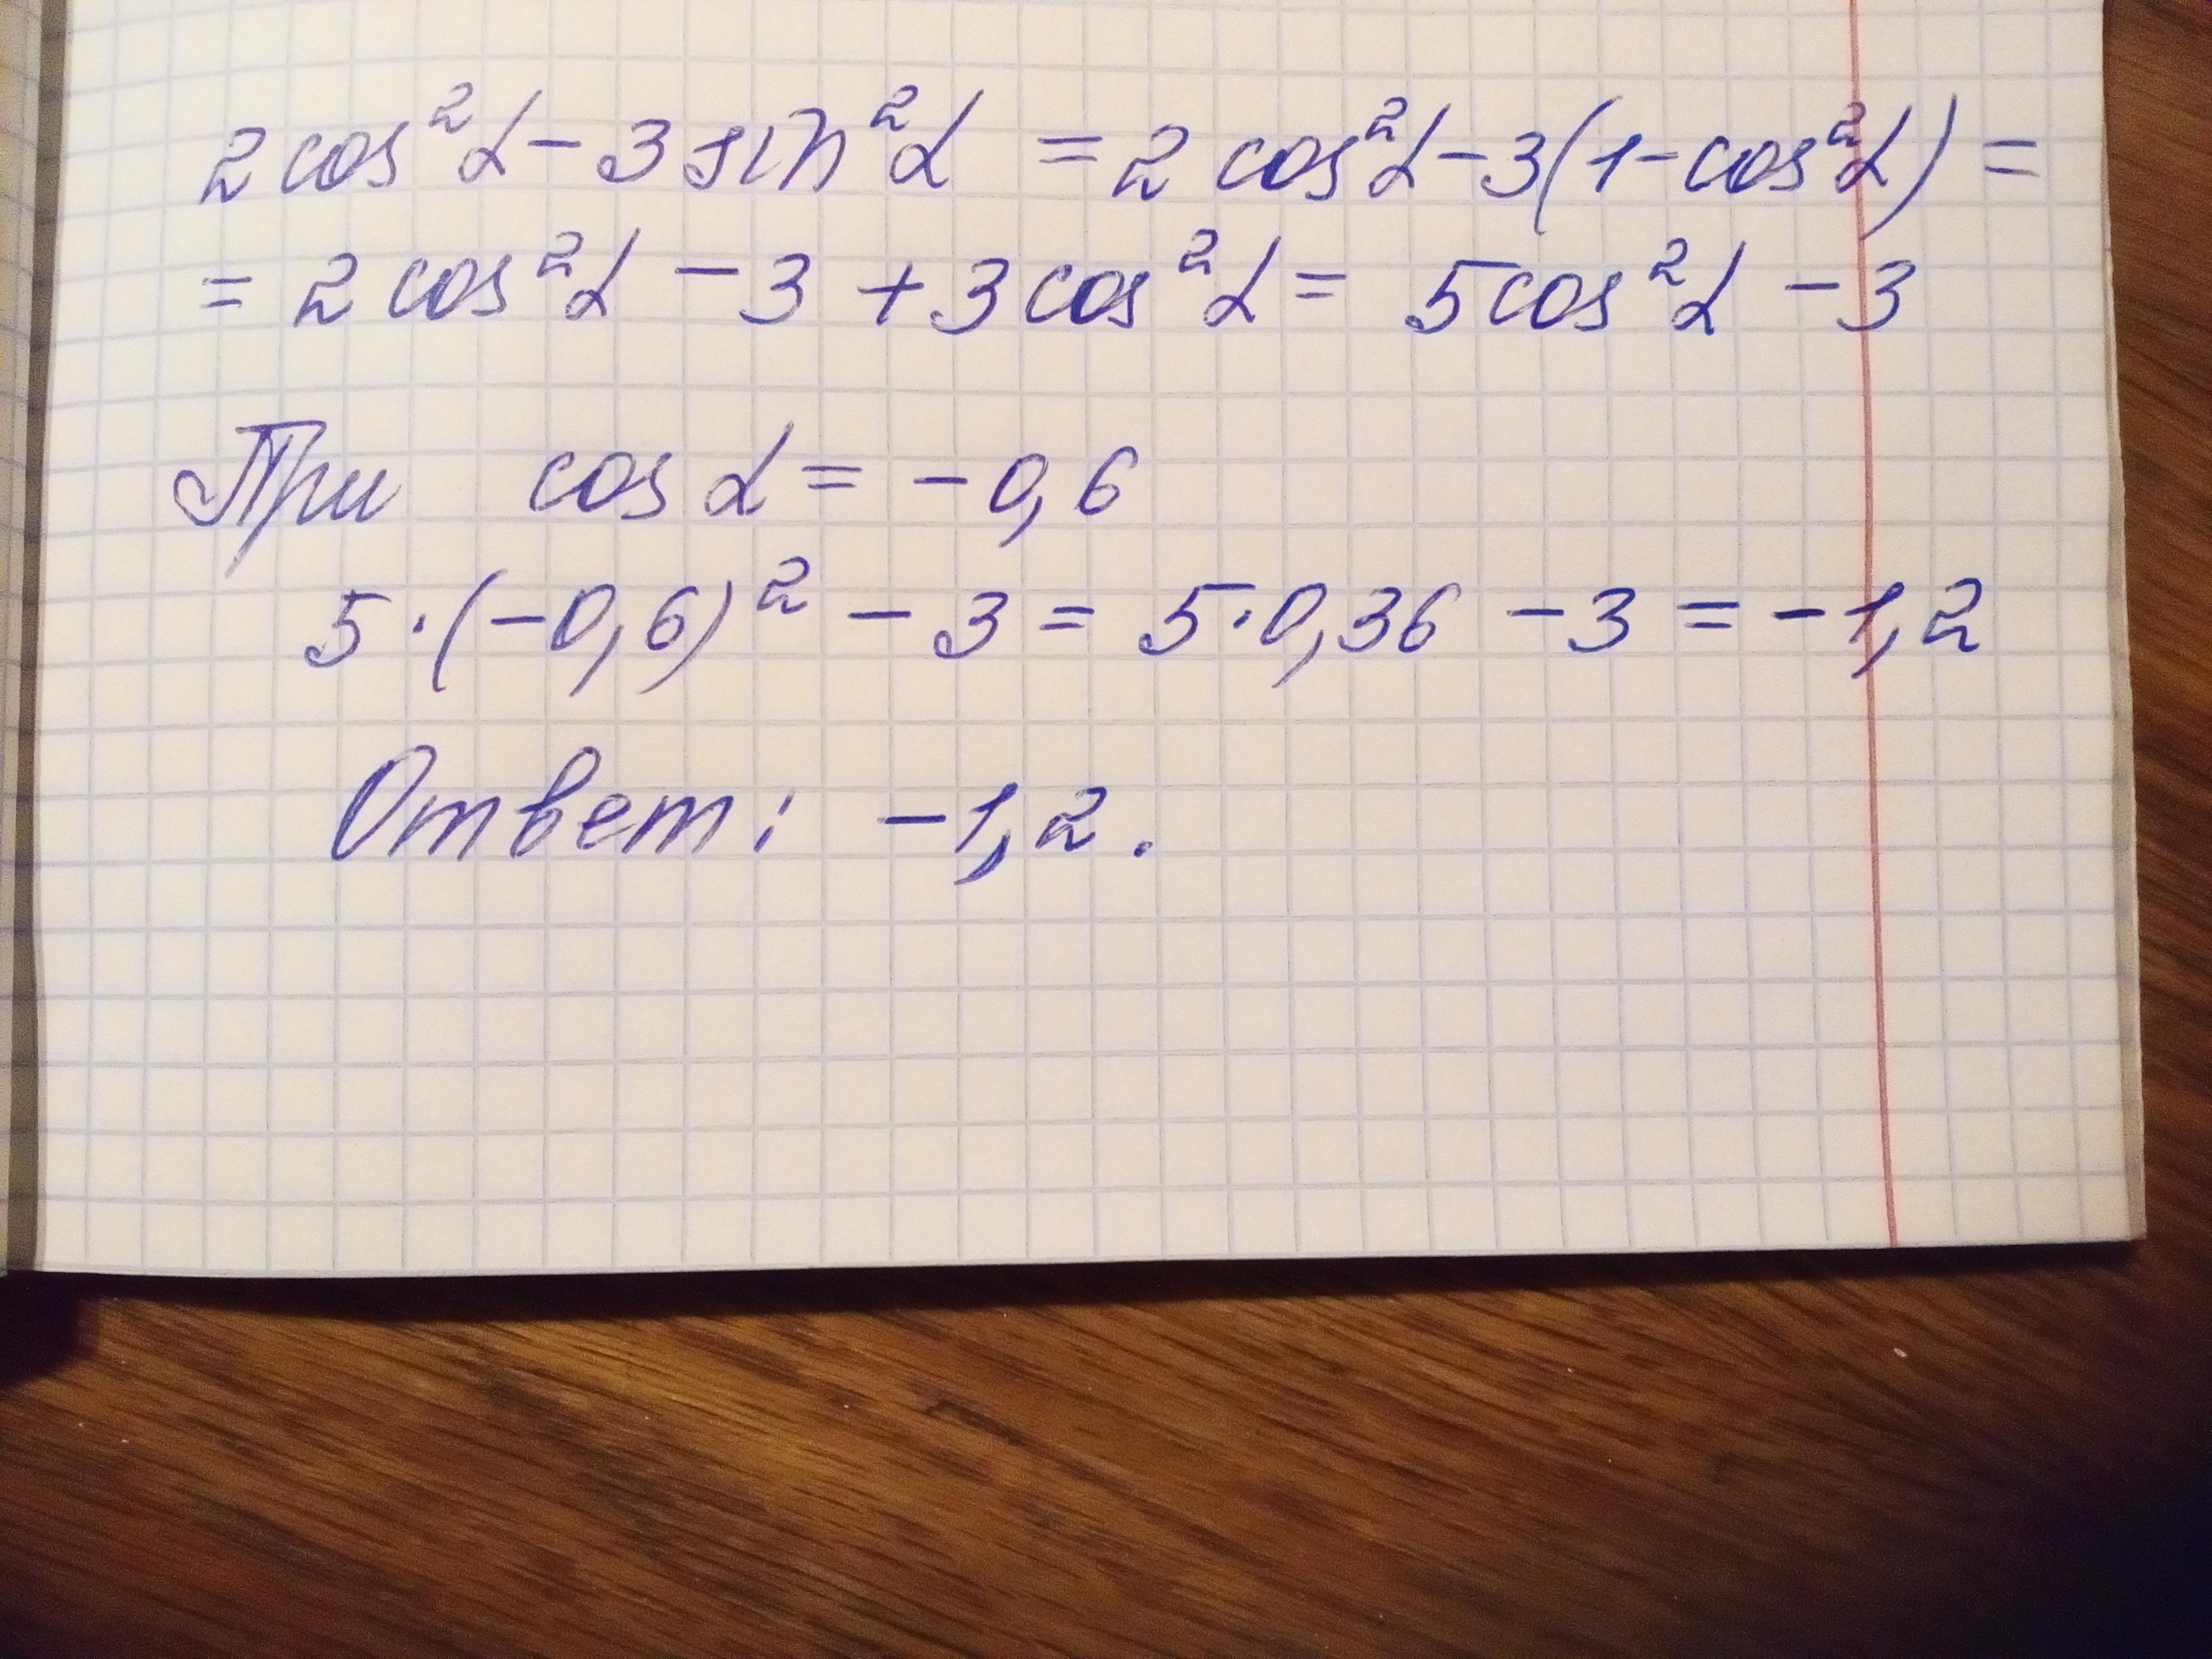 2cos²α - 3sin²α = 2cos²α - 3(1 - cos²α) =
= 2cos²α - 3 + 3cos²α = 5cos²α - 3
При cos α = -0,6
5·(-0,6)² - 3 = 5·0,36 - 3 = -1,2
Ответ: -1,2.